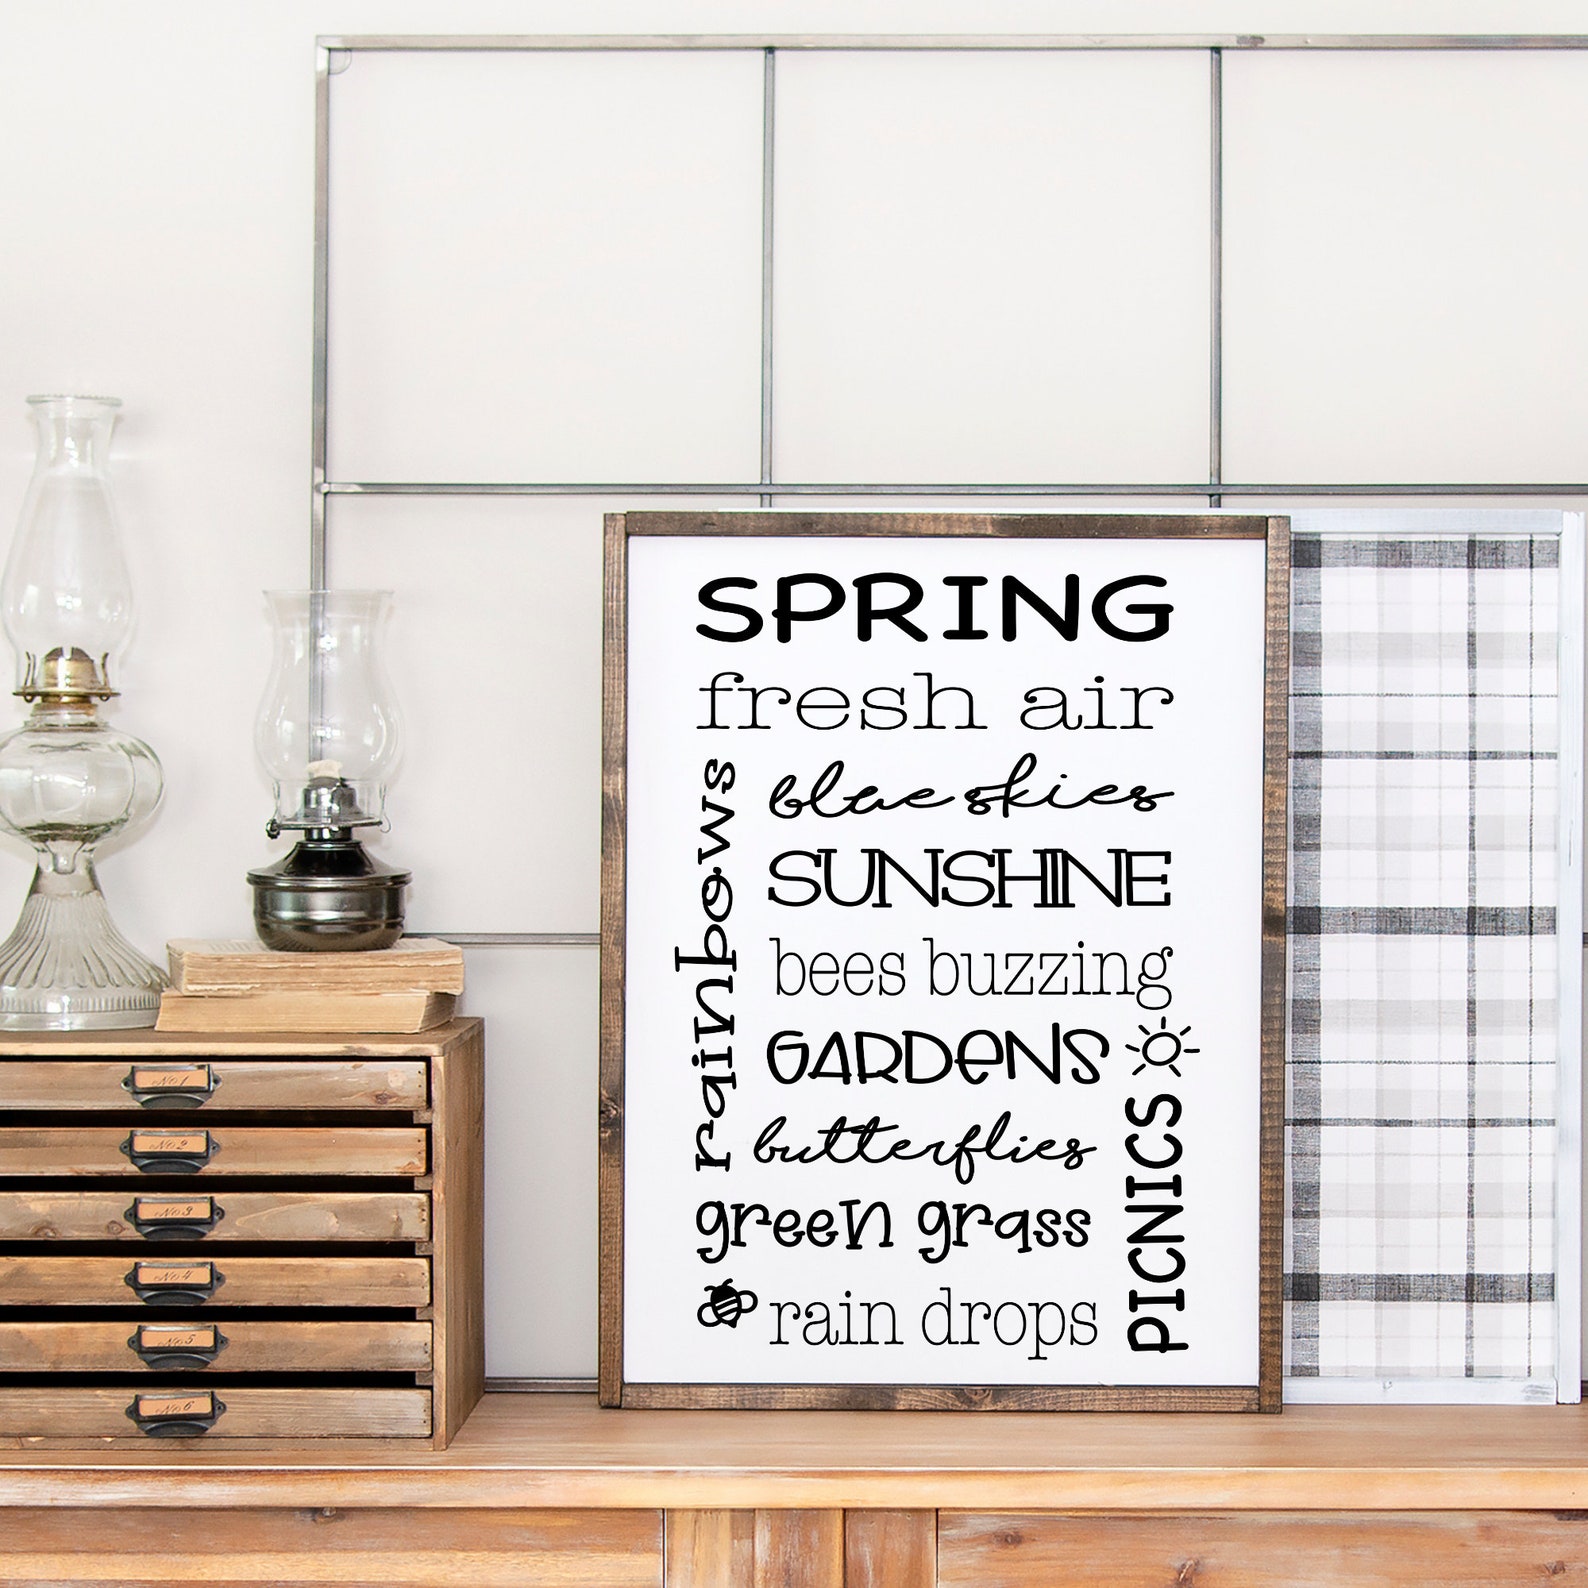 SPRING
fresh air
rainbows
blue skies
SUNSHINE
bees buzzing
GARDENS
butterflies
green grass
rain drops
PICNICS
No 1
No 2
No 3
No 4
No 5
No 6